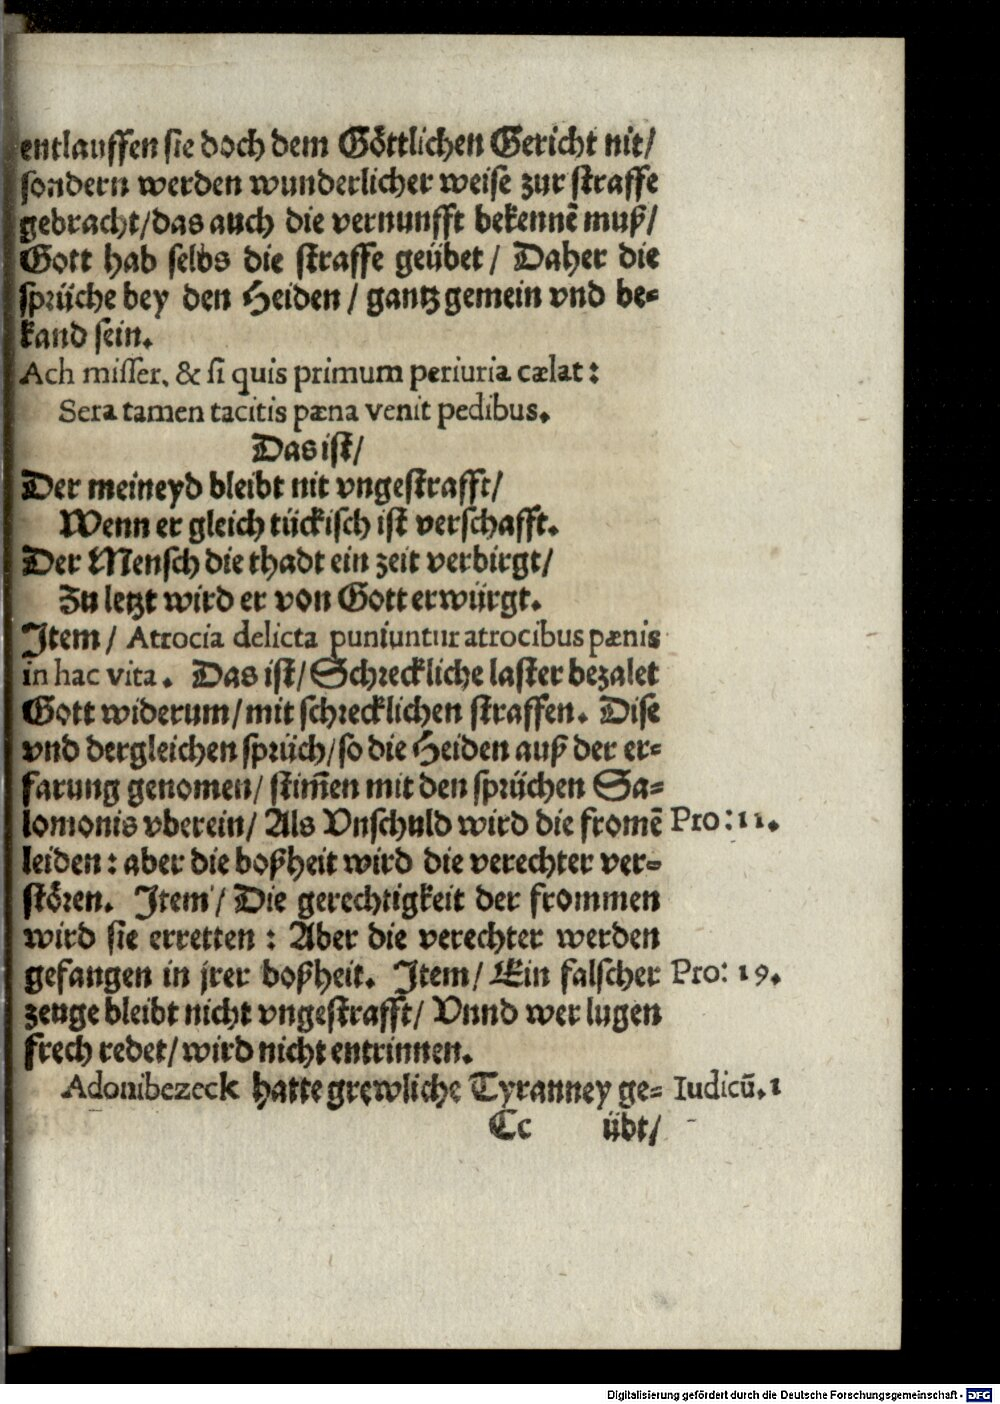 entlauffen sie doch dem Göttlichen Gericht nit/
sondern werden wunderlicher weise zur straffe
gebracht/das auch die vernunfft bekennē muß/
Gott hab selbs die straffe geübet/ Daher die
sprüche bey den Heiden/ gantz gemein vnd be-
kand sein.
Ach misser. & si quis primum periuria cælat:
Sera tamen tacitis pæna venit pedibus.
Das ist/
Der meineyd bleibt nit vngestrafft/
Wenn er gleich tückisch ist verschafft.
Der Mensch die thadt ein zeit verbirgt/
Zu letzt wird er von Gott erwürgt.
Item/ Atrocia delicta puniuntur atrocibus pænis
in hac vita. Das ist/ Schreckliche laster bezalet
Gott widerum/mit schrecklichen straffen. Dise
vnd dergleichen sprüch/so die Heiden auß der er-
farung genomen/ stim̄en mit den sprüchen Sa-
lomonis vberein/ Als Vnschuld wird die fromē Pro: 11.
leiden: aber die boßheit wird die verechter ver-
stören. Item/ Die gerechtigkeit der frommen
wird sie erretten: Aber die verechter werden
gefangen in jrer boßheit. Item/ Ein falscher Pro: 19.
zeuge bleibt nicht vngestrafft/ Vnnd wer lugen
frech redet/wird nicht entrinnen.
Adonibezeck hatte grewliche Tyranney ge- Iudicū. 1
Cc übt/
Digitalisierung gefördert durch die Deutsche Forschungsgemeinschaft - DFG